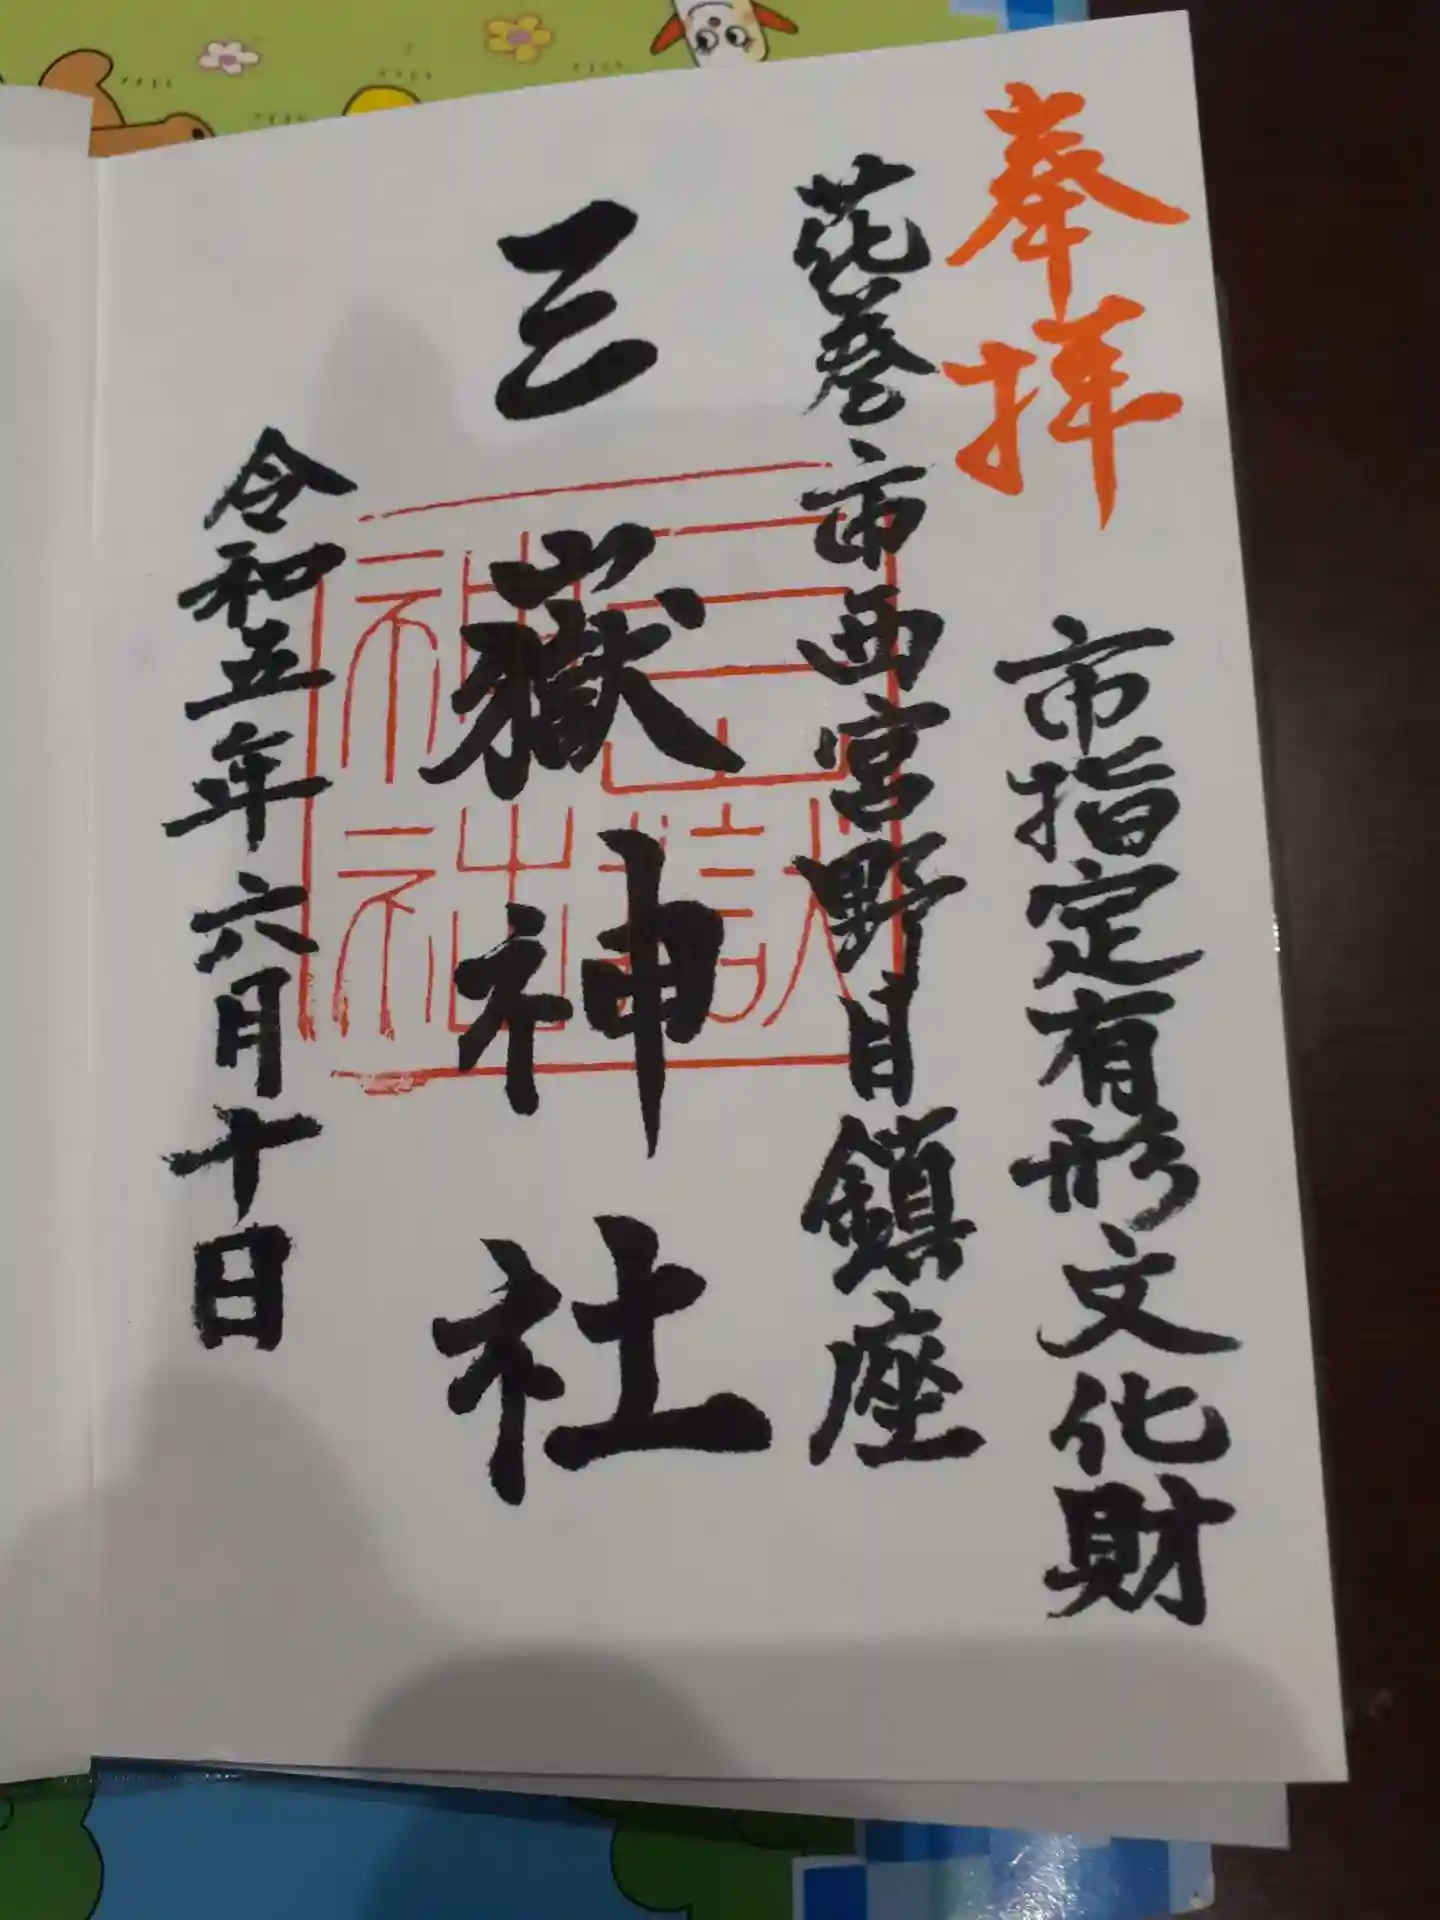 奉拝
市指定有形文化財
花巻市西宮野目鎮座
三嶽神社
三嶽
神社
令和五年六月十日